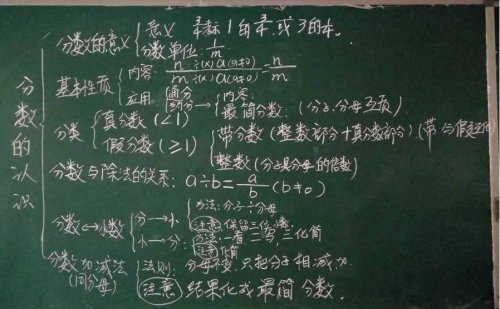 分数的认识
分数的意义 意义 3/4表示1的3/4.或3的1/4.
分数单位:1/m
基本性质 内容 n/m ÷(×)a(a≠0)/÷(×)a(a≠0) = n/m
应用 通分
约分 → 内容:
最简分数:(分子,分母互质)
分类 真分数(<1)
假分数(≥1) 带分数(整数部分+真分数部分)(带与假互化)
整数(分子是分母的倍数)
分数与除法的关系:a÷b=a/b(b≠0)
分数↔小数 分→小 方法:分子÷分母
注意 保留三位小数
小→分: 方法:一看二写,三化简
注意 化简
分数加减法
(同分母) 法则: 分母不变,只把分子相减加
注意 结果化成最简分数.